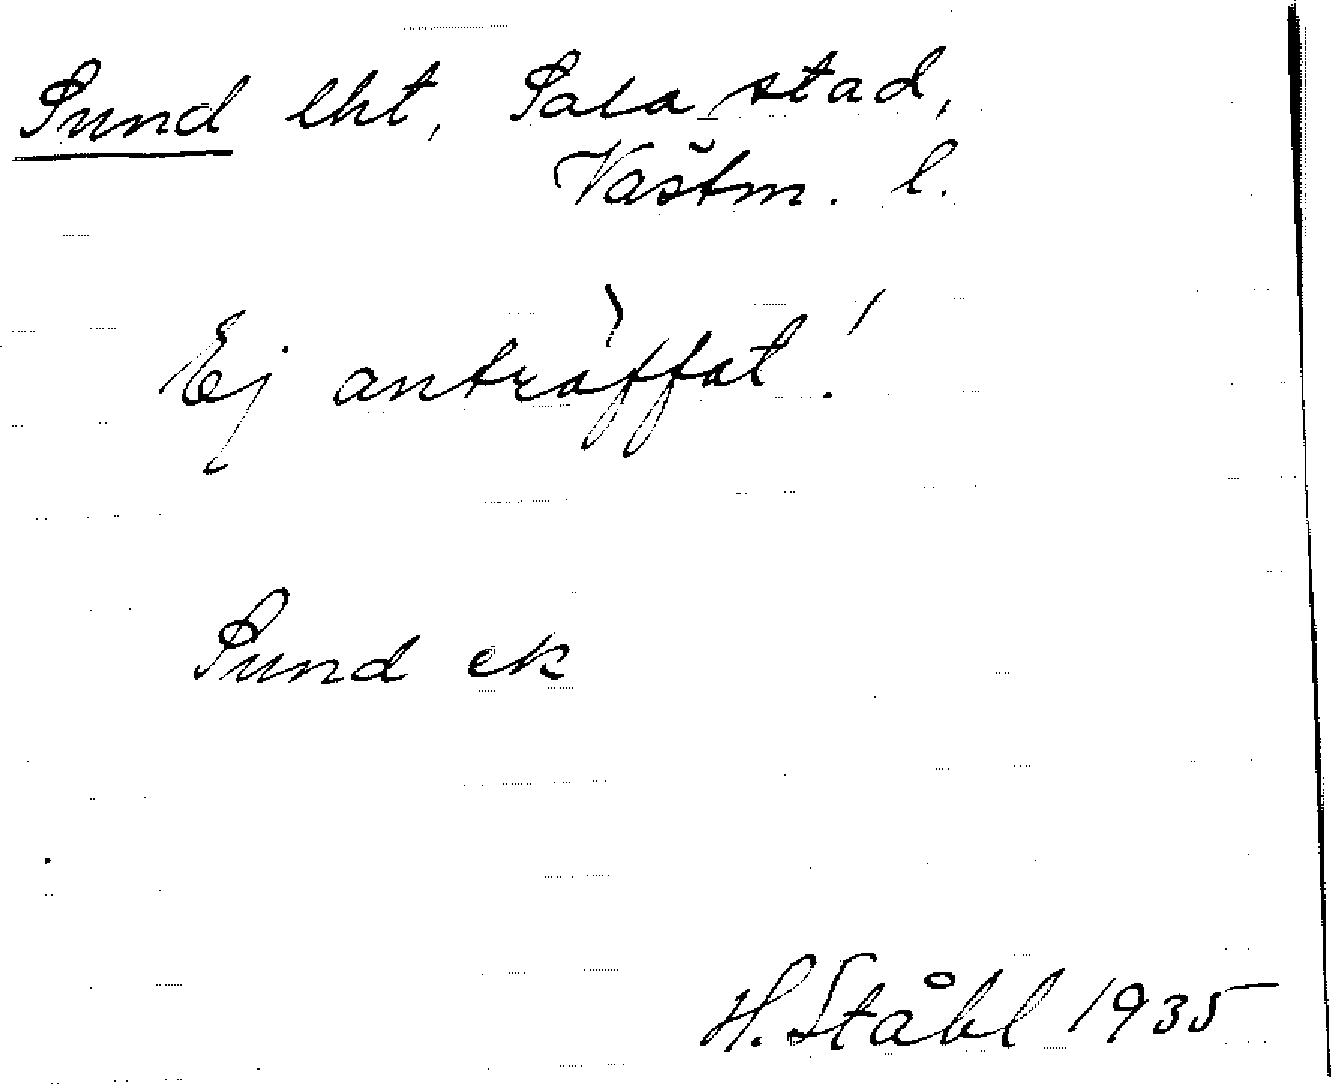 Sund lht, Sala stad,
Västm. l.
Ej anträffat!
Sund ek
H. Ståhl 1935